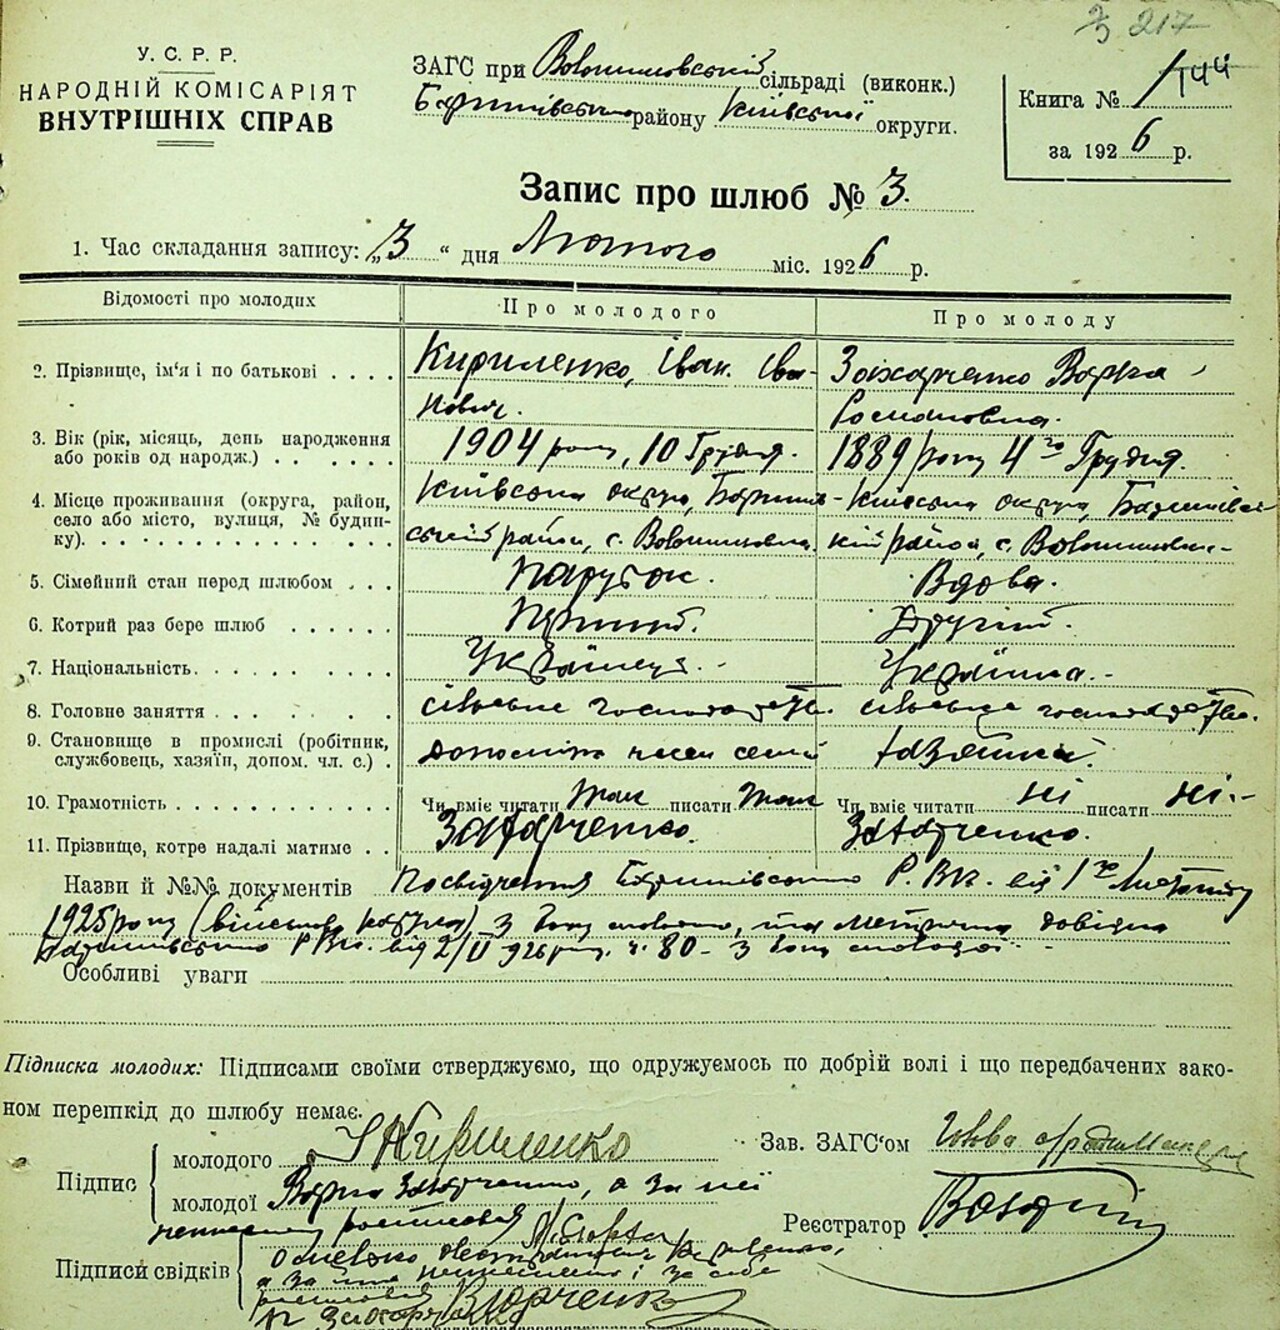 217
У. С. Р. Р.
НАРОДНІЙ КОМІСАРІЯТ
ВНУТРІШНІХ СПРАВ
ЗАГС при Волошиновській сільраді (виконк.)
Баришівського району Київської округи.
Книга № 1/144
за 1926 р.
Запис про шлюб № 3.
1. Час складання запису: „3“ дня Лютого міс. 1926 р.
Відомості про молодих
Про молодого
Про молоду
2. Прізвище, ім'я і по батькові . . . .
Кириленко, Іван Іва-
нович.
Захарченко Варка
Романовна.
3. Вік (рік, місяць, день народження
або років од народж.) . . . . . .
1904 року, 10 Грудня.
1889 року 4го Грудня.
4. Місце проживання (округа, район,
село або місто, вулиця, № будин-
ку). . . . . . . . . . . . . . .
Київська округа, Баришів-
ський район, с. Волошиновка.
Київська округа, Баришівсь-
кий район, с. Волошиновка.-
5. Сімейний стан перед шлюбом . . .
Парубок.
Вдова.
6. Котрий раз бере шлюб . . . . . .
Перший.
Другий.
7. Національність. . . . . . . . . .
Українець.
Українка.
8. Головне заняття . . . . . . . .
сільське господарство.
сільське господарство.
9. Становище в промислі (робітник,
службовець, хазяїн, допом. чл. с.) .
допоміж. член семії
Хазяйка.
10. Грамотність . . . . . . . . . . . .
Чи вміє читати так писати так
Чи вміє читати ні писати ні.-
11. Прізвище, котре надалі матиме . .
Захарченко.
Захарченко.
Назви й №№ документів Посвідчення Баришівського Р.В.К. від 1го Листопаду
1925 року (військов. ) з боку молодого, та метрична довідка
Баришівського Р.В.К. від 2/II 926 року. ч. 80 - з боку молодої
Особливі уваги
Підписка молодих: Підписами своїми стверджуємо, що одружуємось по добрій волі і що передбачених зако-
ном перешкід до шлюбу немає.
Підпис
молодого І Кириленко
молодої Варка Захарченко, а за неї
неписьменну розписався
Зав. ЗАГС'ом Голова сільради
Реєстратор
Підписи свідків
а за неписьменного і за себе
розписався
Захарченко